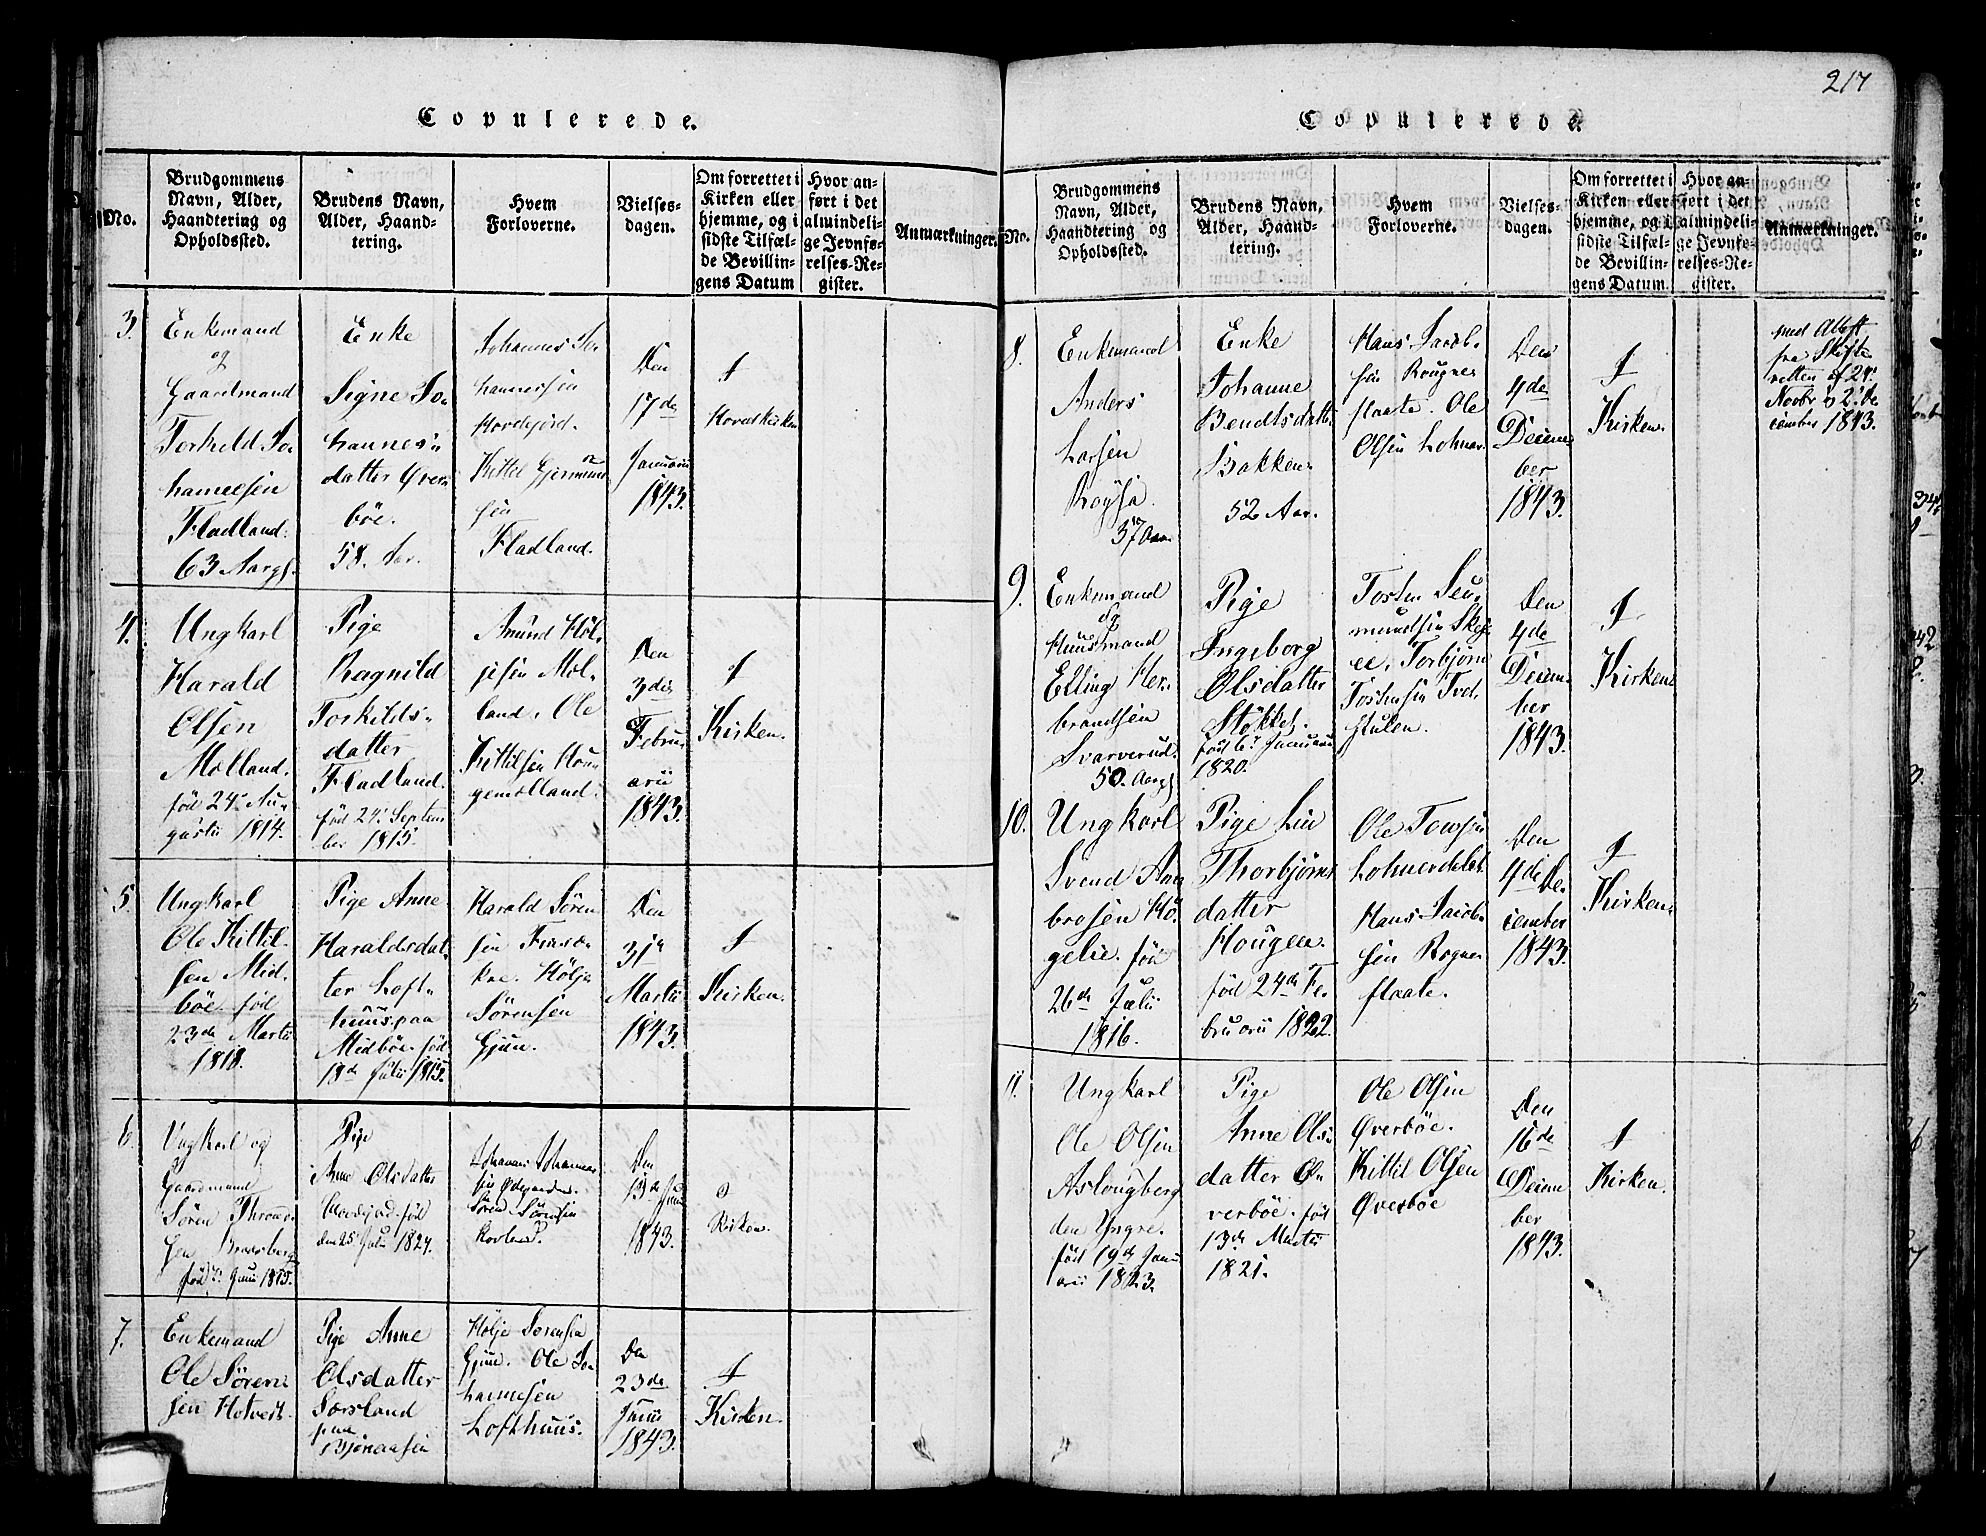 Copulerede.
No.
Brudgommens
Navn, Alder,
Haandtering og
Opholdssted.
Brudens Navn,
Alder, Haand-
tering.
Hvem
Forloverne.
Vielses-
dagen.
Om forrettet i
Kirken eller
hjemme, og i
sidste Tilfæl-
de Bevillin-
gens Datum
Hvor an-
ført i det
almindeli-
ge Jevnfø-
relses-Re-
gister.
Anmærkninger.
3.
Enkemand
og
Gaardmand
Torkeld Jo-
hannesen
Fladland.
63 Aar gl.
Enke
Signe Jo-
hannes-
datter Øver-
bøe.
58. Aar.
Johannes Jo-
hannessen
Hordejord.
Kittel Gjermund-
sen
Fladland.
Den
17de
Januarii
1843.
I
Hovedkirken
4.
Ungkarl
Harald
Olsen
Molland.
fød 24. Au-
gusti 1814.
Pige
Ragnild
Torkilds-
datter
Fladland.
fød 24. Septem-
ber 1815.
Anund Høl-
jesen Mol-
land. Ole
Kittilsen Hou-
gemolland.
Den
3die
Febru-
arii
1843.
I
Kirken.
5.
Ungkarl
Ole Kittil-
sen Mid-
bøe. fød
23de Martii
1818.
Pige Anne
Haraldsdat-
ter Loft-
huus paa
Midbøe. fød
18de Julii 1815.
Harald Søren-
sen
Hølje
Sørensen
Gjuu.
Den
31te
Martii
1843.
I
Kirken.
6.
Ungkarl og
Gaardmand
Søren
sen
Pige
Anne Olsdatter
fød
den 25. Julii 1824.
Johannes Johannes-
sen Ødegaarden.
Søren Sørensen
Den
13de Junii
1843.
I
Kirken.
7.
Enkemand
Ole Søren-
sen Hotvedt.
Pige Anne
Olsdatter
Sorsland
paa
Hølje Sørensen
Gjuu. Ole Jo-
hannesen
Lofthuus.
Den
23de
Junii
1843.
I
Kirken.
217
Copulerede.
No.
Brudgommens
Navn, Alder,
Haandtering og
Opholdssted.
Brudens Navn,
Alder, Haand-
tering.
Hvem
Forloverne.
Vielses-
dagen.
Om forrettet i
Kirken eller
hjemme, og i
sidste Tilfæl-
de Bevillin-
gens Datum.
Hvor an-
ført i det
almindeli-
ge Jevnfø-
relses-Re-
gister.
Anmærkninger.
8.
Enkemand
Anders
Larsen
Røysa.
37 Aar.
Enke
Johanne
Bendtsdatter
Bakken.
52 Aar.
Hans Jacob-
sen Rougne-
flaate. Ole
Olsen Lohner.
Den
4de
Decem-
ber
1843.
I
Kirken.
med Attest
fra Skifte-
retten af 24.
Novbr & 2. De-
cember 1843.
9.
Enkemand
og
Huusmand
Elling Her-
brandsen
Svarverud.
50. Aar gl.
Pige
Ingeborg
Olsdatter
Støkket.
fød 6. Januarii
1820.
Tosten Seu-
mundsen
Torbjørn
Tostensen Tved-
stulen.
Den
4de
Decem-
ber
1843.
I
Kirken.
10.
Ungkarl
Svend Am-
brosen Hø-
gelie. fød
26de Julii
1816.
Pige Liv
Thorbjørns-
datter
Hougen.
fød 24de Fe-
bruarii 1822.
Ole
Lohnerdelet.
Hans Jacob-
sen Rogne-
flaate.
Den
4de De-
cember
1843.
I
Kirken.
11.
Ungkarl
Ole Olsen
Aslougberg
den Yngre.
fød 19de Janu-
arii 1823.
Pige
Anne Ols-
datter Ø-
verbøe. fød
13de Martii
1821.
Ole Olsen
Øverbøe.
Kittil Olsen
Øverbøe
Den
16de
Decem-
ber
1843.
I
Kirken.